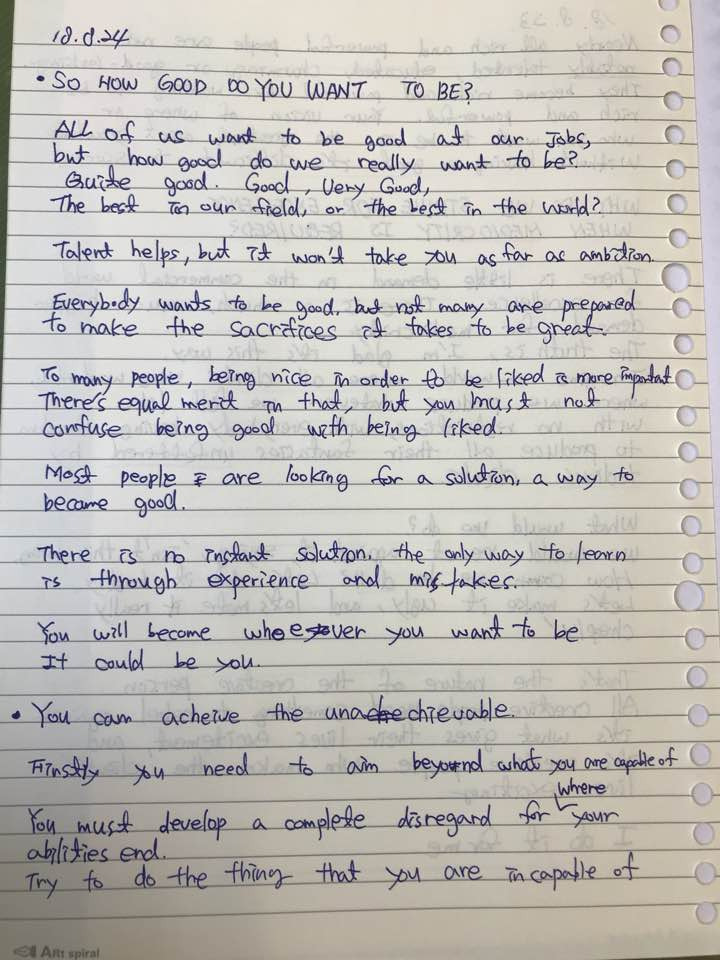 18.8.24
• SO HOW GOOD DO YOU WANT TO BE?
ALL of us want to be good at our Jobs,
but how good do we really want to be?
Quite good. Good, Very Good,
The best in our field, or the best in the world?
Talent helps, but it won't take you as far as ambition.
Everybody wants to be good, but not many are prepared
to make the sacrifices it takes to be great.
To many people, being nice in order to be liked is more important
There's equal merit in that, but you must not
confuse being good with being liked.
Most people are looking for a solution, a way to
became good.
There is no instant solution, the only way to learn
is through experience and mistakes.
You will become whoever you want to be
It could be you.
• You can acheive the unachievable.
Firstly you need to aim beyond what you are capable of
You must develop a complete disregard for where your
abilities end.
Try to do the thing that you are incapable of
Art spiral